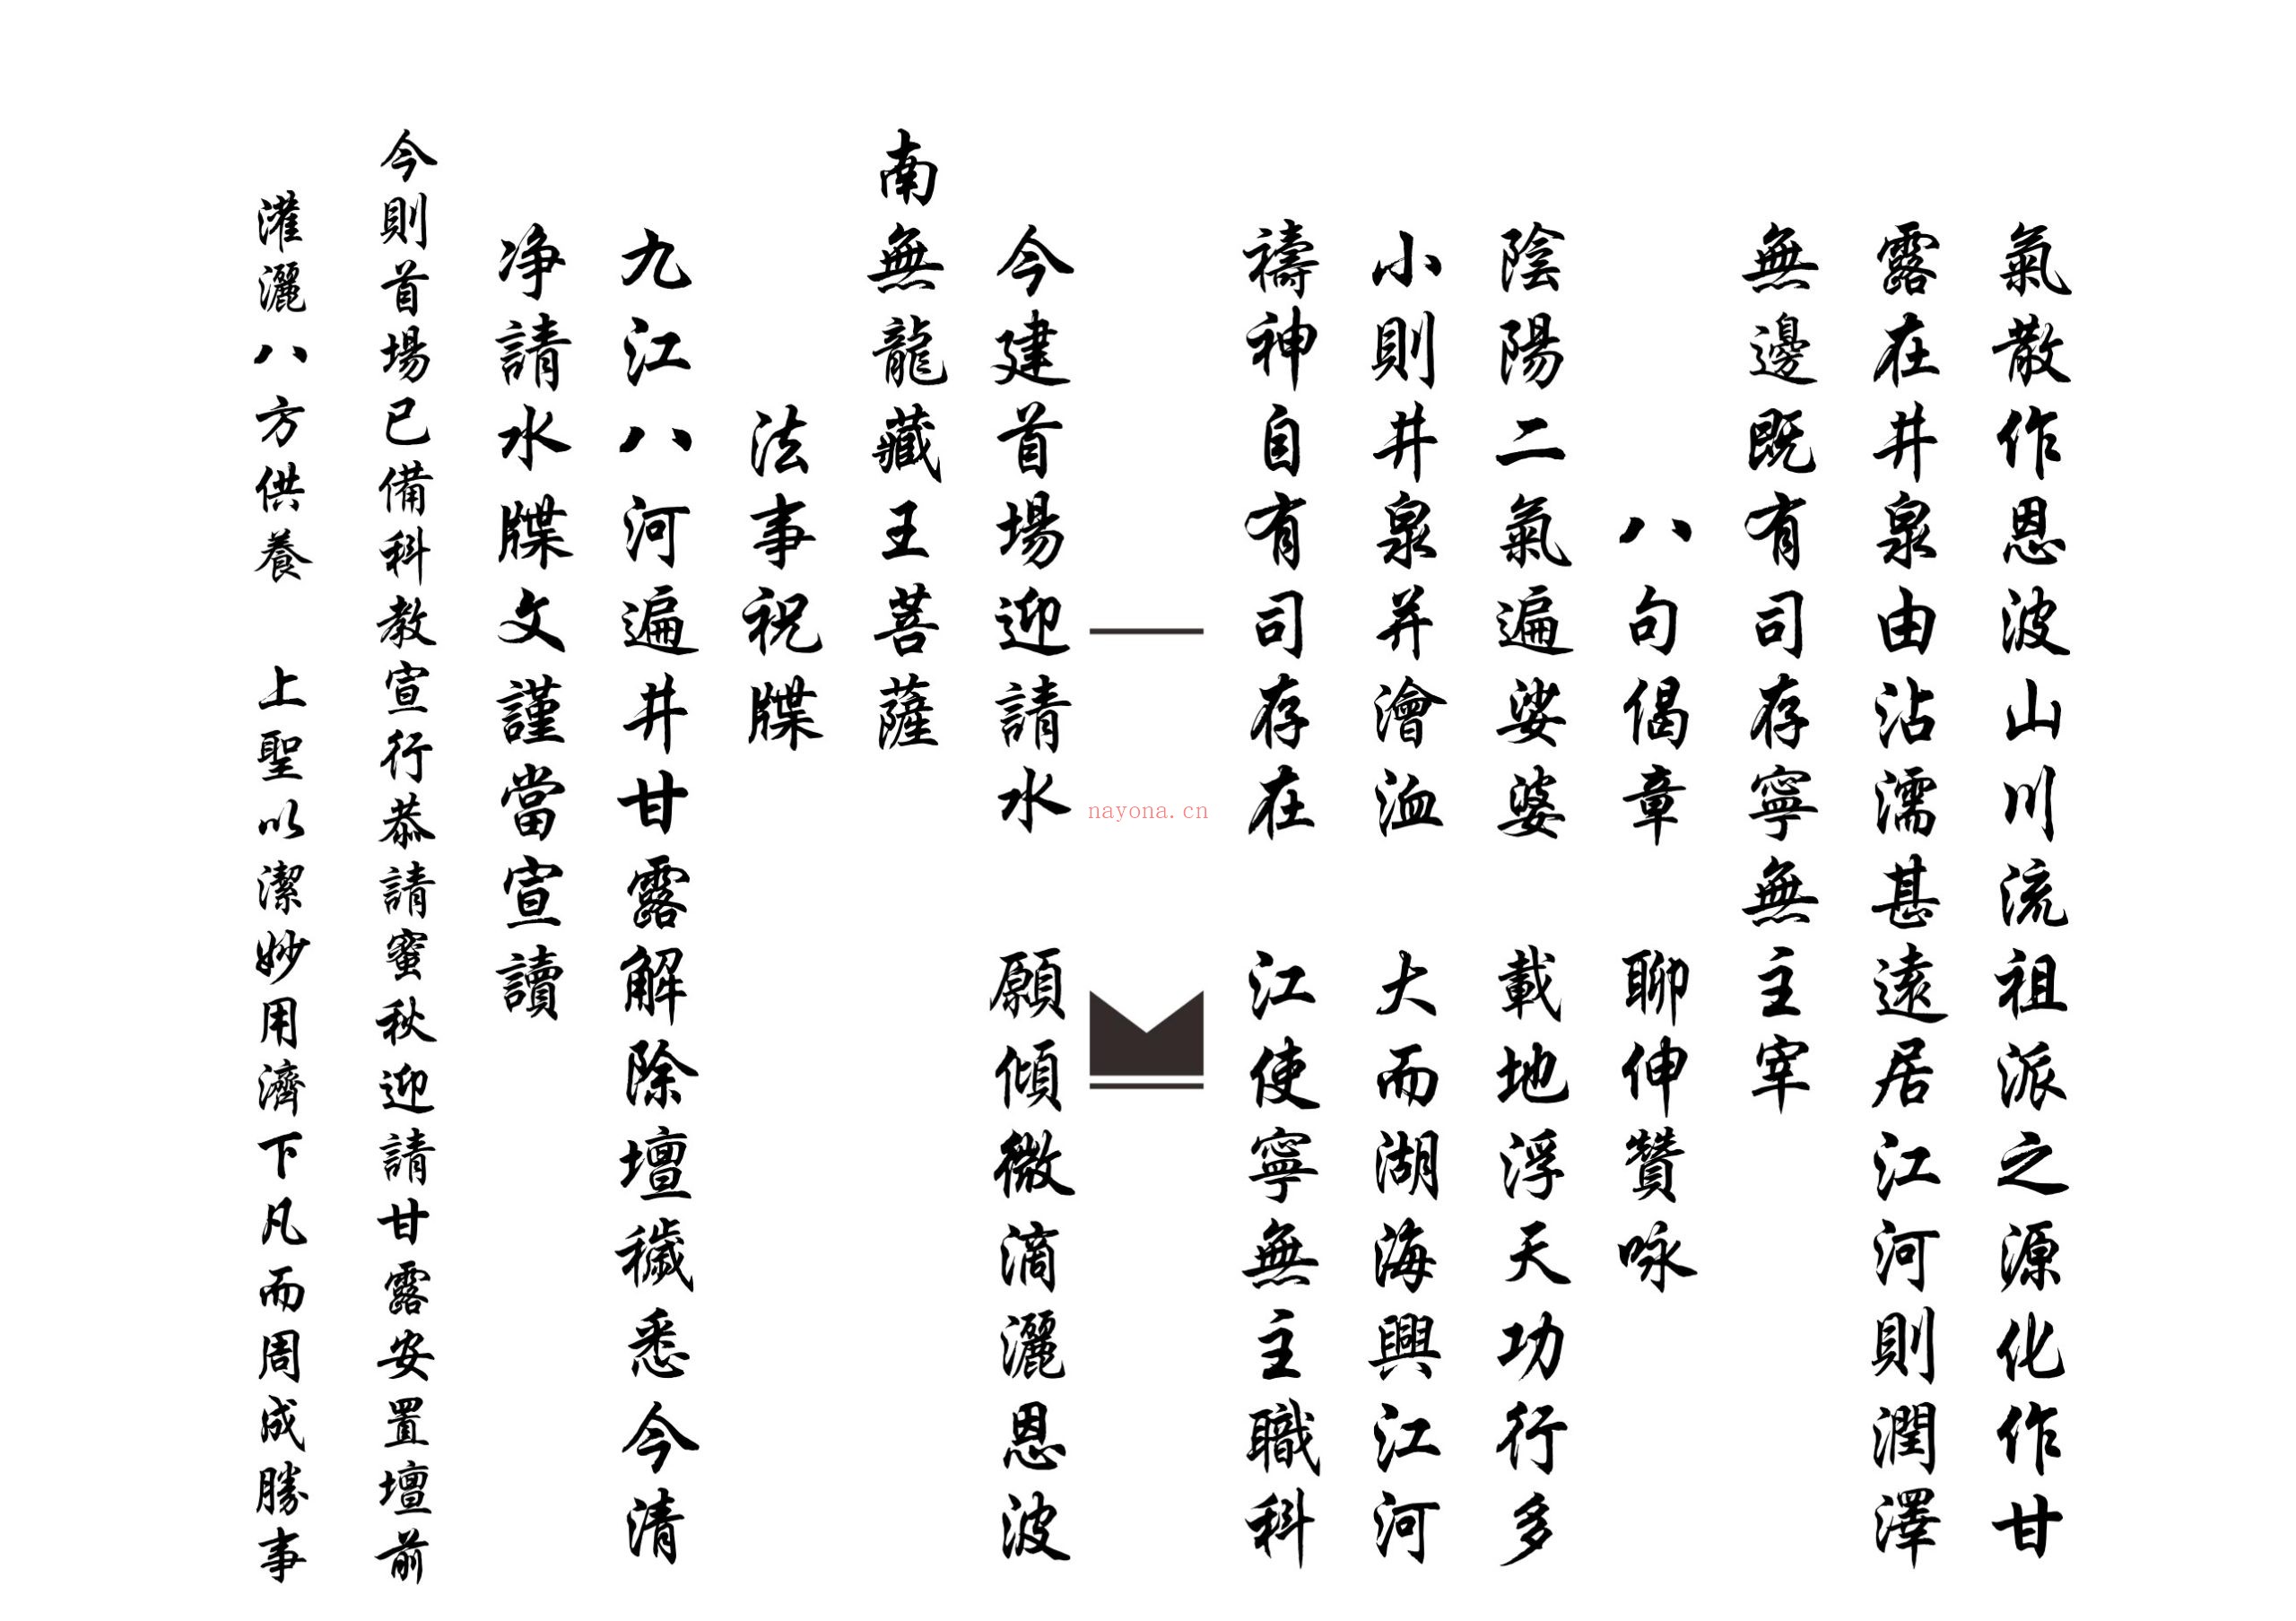 氣散作恩波山川流祖派之源化作甘
露在井泉由沾濡甚遠居江河則潤澤
無邊既有司存寧無主宰
八句偈章　聊伸贊咏
陰陽二氣遍娑婆　載地浮天功行多
小則井泉并澮洫　大而湖海興江河
禱神自有司存在　江使寧無主職科
今建首場迎請水　願傾微滴灑恩波
南無龍藏王菩薩
法事祝牒
九江八河遍井甘露解除壇穢悉今清
净請水牒文謹當宣讀
今則首場已備科教宣行恭請蜜秋迎請甘露安置壇前
灌灑八方供養　上聖以潔妙用濟下凡而周成勝事
nayona.cn